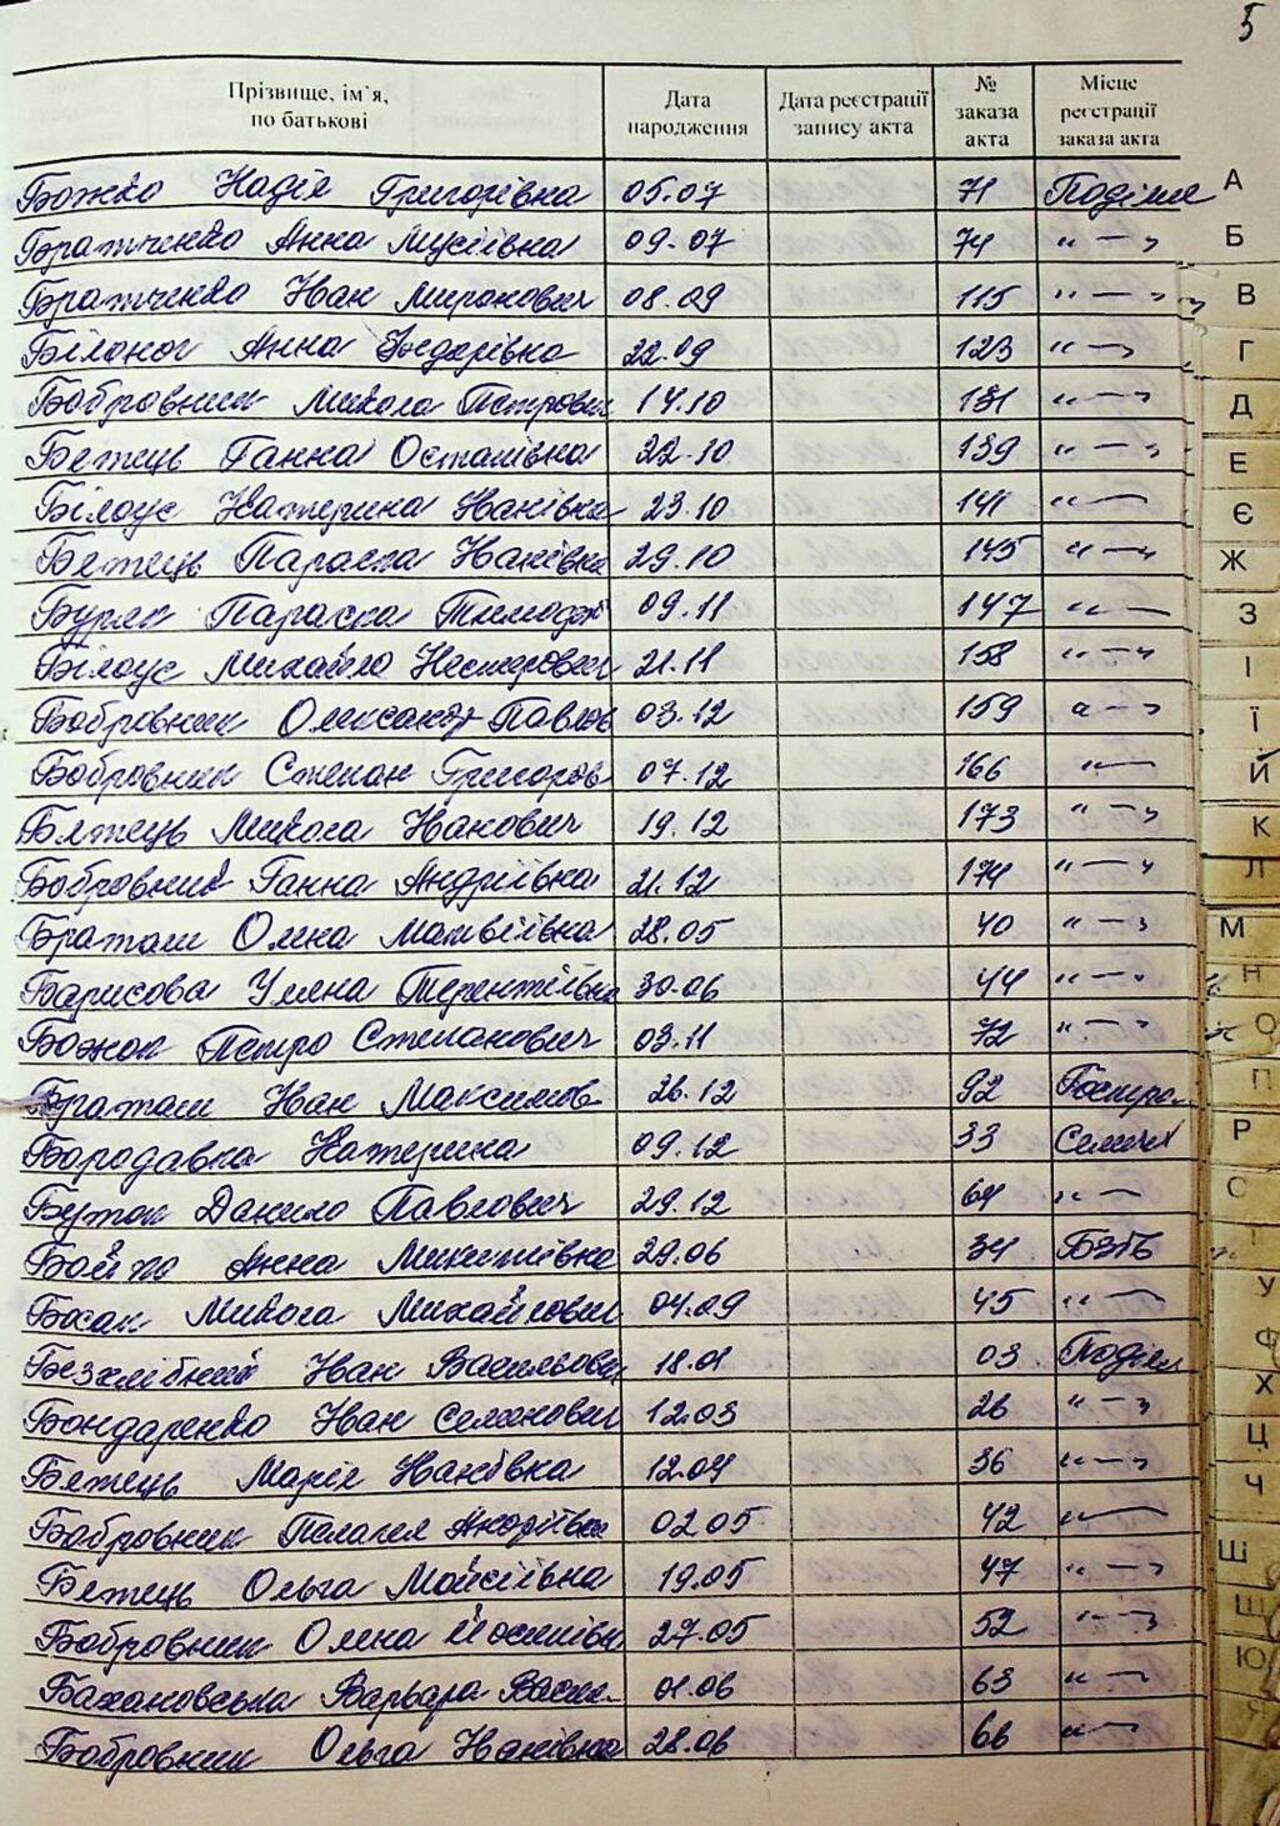 5
Прізвище, ім`я, по батькові Дата народження Дата реєстрації запису акта № заказа акта Місце реєстрації заказа акта
Божко Надія Григорівна 05.07 71 Поділля
Братченко Анна Мусіївна 09.07 74 " — "
Братченко Іван Миронович 08.09 115 " — "
Білоног Анна 22.09 123 " — "
Бобровник Микола Петрович 14.10 131 " — "
Бежець Ганна Остапівна 22.10 139 " — "
Білоус Катерина Іванівна 23.10 141 " —
Бежець Параска Іванівна 29.10 145 " — "
Буряк Параска Тимофії 09.11 147 " —
Білоус Михайло Несторович 21.11 158 " — "
Бобровник Олександр Павлов 03.12 159 " — "
Бобровник Степан Григоров 07.12 166 " —
Бежець Микола Іванович 19.12 173 " — "
Бобровник Ганна Андріївна 21.12 174 " — "
Браташ Олена Матвіївна 28.05 40 " — "
Барисова Уляна Терентіївна 30.06 44 " — "
Божок Петро Степанович 03.11 72 " — "
Браташ Іван Максимов 26.12 92
Бородавка Катерина 09.12 33
Буток Данило Павлович 29.12 64 " —
Бойко Анна Микитівна 29.06 34
Микола Михайлович 04.09 45 " —
Безхлібний Іван Васильович 18.01 03 Поділля
Бондаренко Іван Семенович 12.03 26 " — "
Бежець Марія Іванівна 12.04 36 " — "
Бобровник Пелагея Андріївна 02.05 42 " —
Бежець Ольга Мойсіївна 19.05 47 " — "
Бобровник Олена Йосипівн 27.05 52 " — "
Бахановська Варвара Васил. 01.06 63 " —
Бобровник Ольга Іванівна 28.06 66 " —
А
Б
В
Г
Д
Е
Є
Ж
З
І
Ї
Й
К
Л
М
Н
О
П
Р
С
У
Ф
Х
Ц
Ч
Ш
Щ
Ю
Я